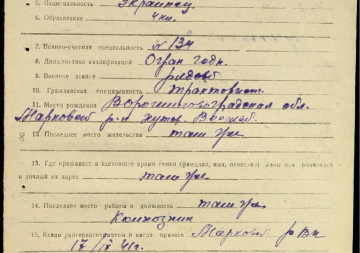 5. Национальность Украинец
6. Образование 4 кл.
7. Военно-учетная специальность № 134
8. Должностная квалификация Огран годн.
9. Военное звание рядовой
10. Гражданская специальность тракторист
11. Место рождения Ворошиловоградская обл.
Марковский р-н хутор
12. Последнее место жительства там же
13. Где проживает в настоящее время семья (фамилия, имя, отчество) жены или родителей
и точный их адрес там же
14. Последнее место работы и должность там же
Колхозник
15. Каким райвоенкоматом и когда призван Марковский РВК
17 41г.